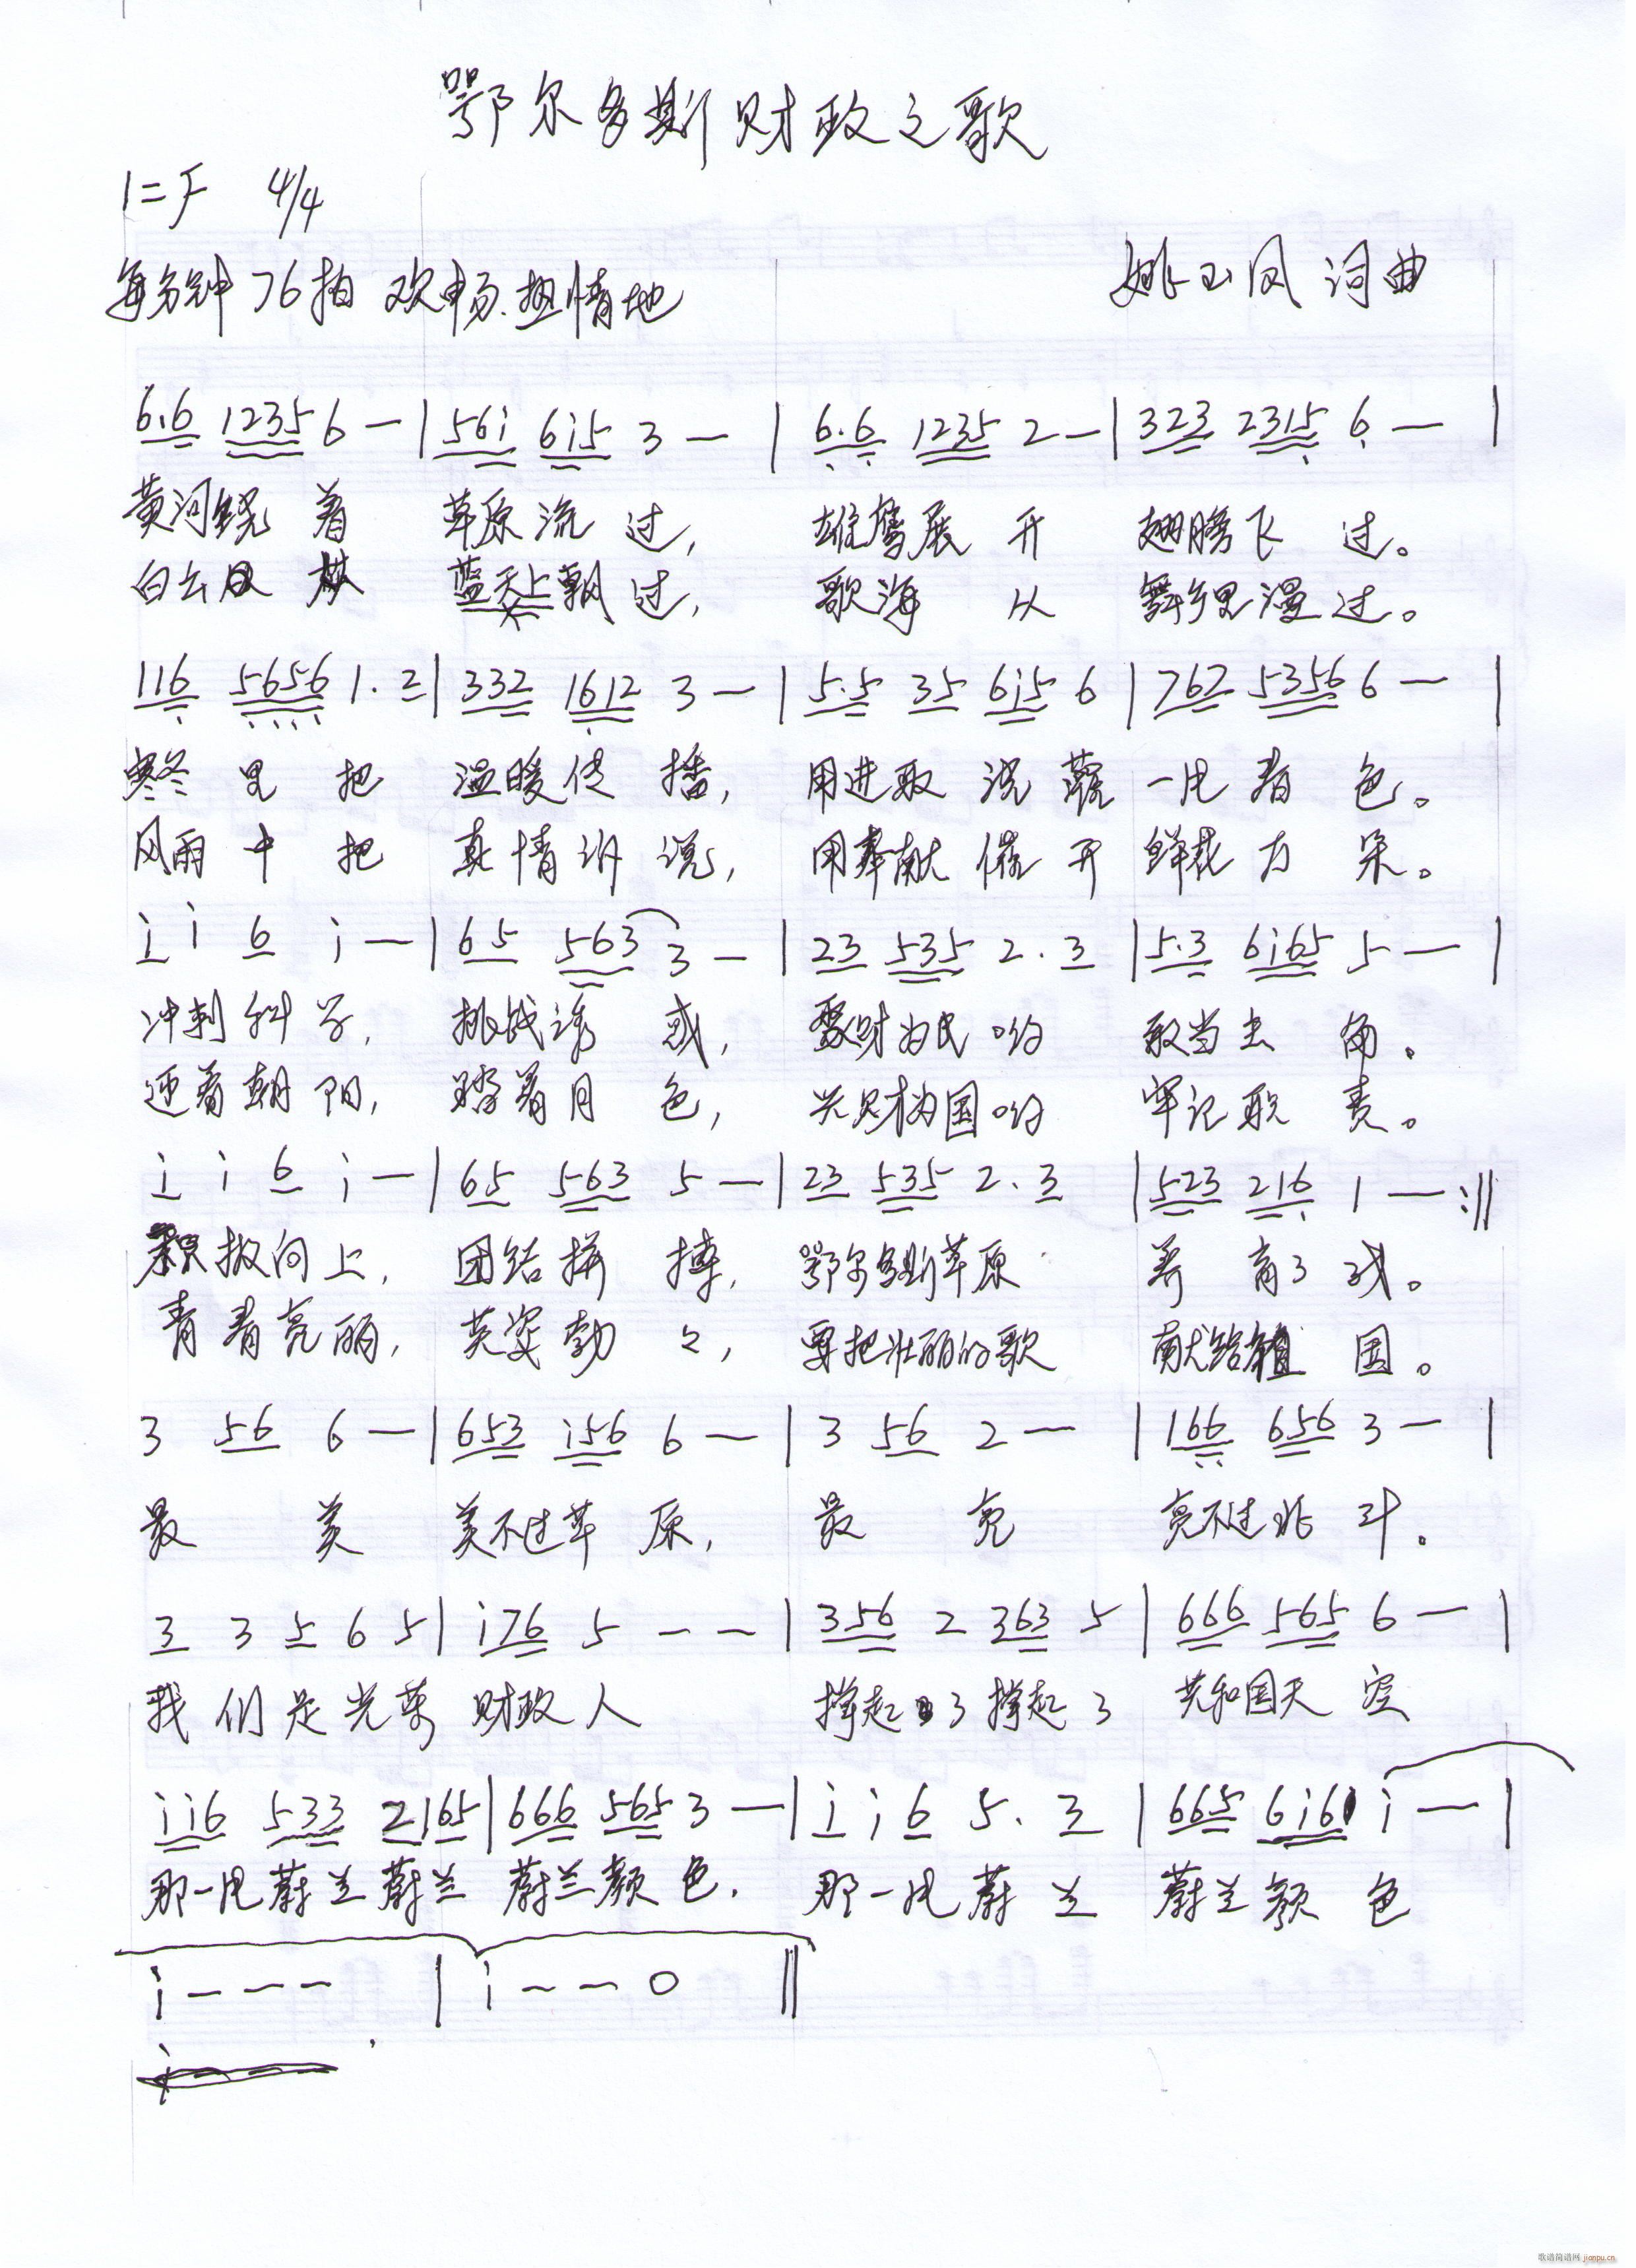 鄂尔多斯财政之歌
1=F 4/4
每分钟76拍 欢畅.热情地
姚玉凤 词曲
6.6 1235 6 — | 56i 6i5 3 — | 6.6 1235 2 — | 323 2315 6 — |
黄河绕着 草原流过, 雄鹰展开 翅膀飞过。
白云从 蓝天上飘过, 歌海从 舞乡里漫过。
116 5656 1.2 | 332 1612 3 — | 5.5 35 6i5 6 | 767 5356 6 — |
寒冬里把 温暖传播, 用进取浇灌 一片春色。
风雨中把 真情诉说, 用奉献催开 鲜花万朵。
i i 6 i — | 65 563 3 — | 23 535 2.3 | 5.3 6i65 5 — |
冲刺科学, 挑战诱惑, 聚财为民哟 敢当主角。
迎着朝阳, 踏着月色, 兴财为国哟 牢记职责。
i i 6 i — | 65 563 5 — | 23 535 2.3 | 523 216 1 — :||
积极向上, 团结拼搏, 鄂尔多斯草原 养育了我。
青春亮丽, 英姿勃々, 要把壮丽的歌 献给祖国。
3 56 6 — | 653 i56 6 — | 3 56 2 — | 166 656 3 — |
最美 美不过草原, 最亮 亮不过北斗。
3 3 5 6 5 | i76 5 — — | 356 2 363 5 | 666 565 6 — |
我们是光荣 财政人 撑起了撑起了 共和国天空
ii6 533 2165 | 666 565 3 — | i i 6 5. 3 | 665 6i6 i — |
那一片蔚兰蔚兰 蔚兰颜色. 那一片蔚兰 蔚兰颜色
i — — — | i — — 0 ||
歌谱简谱网 jianpu.cn